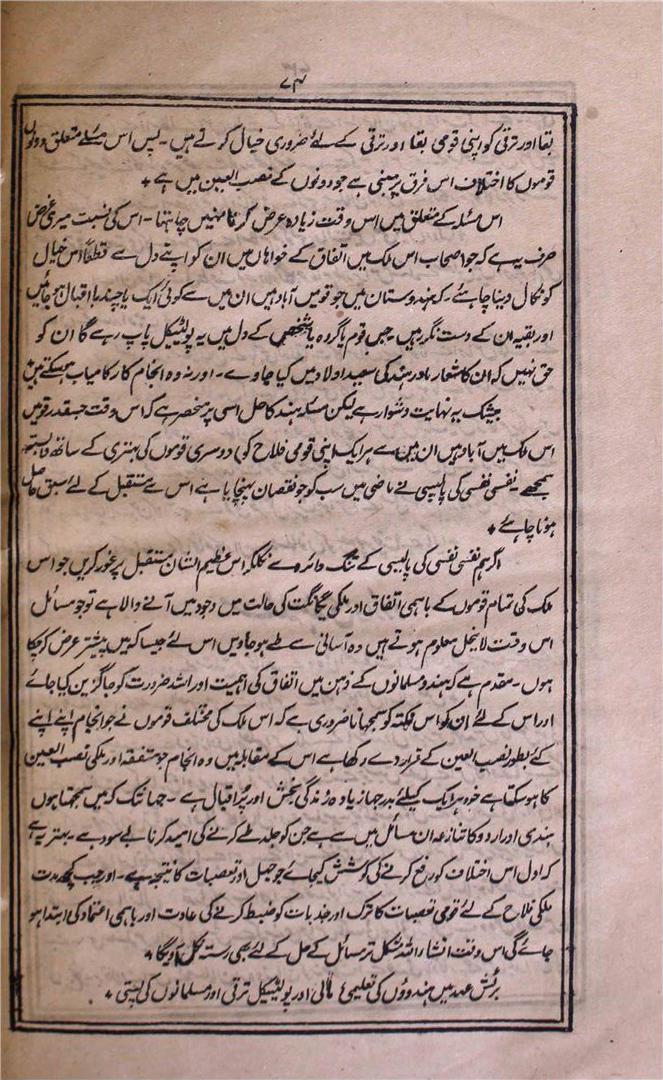 ۷۴
بقا اور ترقی کو اپنی قومی بقا اور ترقی کے لئے ضروری خیال کرتے ہیں۔ پس اس مسئلے متعلق دونوں
قوموں کا اختلاف اس فرق پر مبنی ہے جو دونوں کے نصب العین میں ہے ٭
اس مسئلہ کے متعلق میں اس وقت زیادہ عرض کرنا نہیں چاہتا۔ اس کی نسبت میری غرض
صرف یہ ہے کہ جو اصحاب اس ملک میں اتفاق کے خواہاں ہیں ان کو اپنے دل سے قطعاً اس خیال
کو نکال دینا چاہئے۔ کہ ہندوستان میں جو قومیں آباد ہیں ان میں سے کوئی ایک یا چند با اقبال ہو جائیں
اور بقیہ ان کے دست نگر رہیں۔ جس قوم یا گروہ یا شخص کے دل میں یہ پولٹیکل پاپ رہے گا ان کو
حق نہیں کہ ان کا شمار مادر ہند کی سعید اولاد میں کیا جاوے۔ اور نہ وہ انجام کار کامیاب ہو سکتے ہیں
بیشک یہ نہایت دشوار ہے لیکن مسئلہ ہند کا حل اسی پر منحصر ہے کہ اس وقت جسقدر قومیں
اس ملک میں آباد ہیں ان میں سے ہر ایک اپنی قومی فلاح کو دوسری قوموں کی بہتری کے ساتھ وابستہ
سمجھے۔ نفسی نفسی کی پالیسی نے ماضی میں سب کو جو نقصان پہنچایا ہے اس سے مستقبل کے لئے سبق حاصل
ہونا چاہئے ٭
اگر ہم نفسی نفسی کی پالیسی کے تنگ دائرہ سے نکلکر اس عظیم الشان مستقبل پر غور کریں جو اس
ملک کی تمام قوموں کے باہمی اتفاق اور ملکی یگانگت کی حالت میں وجود میں آنے والا ہے تو جو مسائل
اس وقت لاینحل معلوم ہوتے ہیں وہ آسانی سے طے ہو جاویں اس لئے جیسا کہ میں پیشتر عرض کر چکا
ہوں۔ مقدم ہے کہ ہندو مسلمانوں کے ذہن میں اتفاق کی اہمیت اور اشد ضرورت کو جاگزین کیا جائے
اور اس کے لئے ان کو اس نکتہ کو سمجھانا ضروری ہے کہ اس ملک کی مختلف قوموں نے جو انجام اپنے اپنے
لئے بطور نصب العین کے قرار دے رکھا ہے اس کے مقابلہ میں وہ انجام جو متفقہ اور ملکی نصب العین
کا ہو سکتا ہے خود ہر ایک کیلئے بدرجہا زیادہ زندگی بخش اور پر اقبال ہے۔ جہانتک کہ میں سمجھتا ہوں
ہندی اور اردو کا تنازعہ ان مسائل میں سے ہے جن کو جلد طے کرنے کی امید کرنا بے سود ہے۔ بہتر یہ ہے
کہ اول اس اختلاف کو رفع کرنے کی کوشش کیجائے جو جہل اور تعصبات کا نتیجہ ہے۔ اور جب کچھ مدت
ملکی فلاح کے لئے قومی تعصبات کا ترک اور جذبات کو ضبط کرنے کی عادت اور باہمی اعتماد کی ابتدا ہو
جائے گی اس وقت انشاء اللہ مشکل تر مسائل کے حل کے لئے بھی رستہ نکل آویگا ٭
برٹش عہد میں ہندوؤں کی تعلیمی، مالی اور پولٹیکل ترقی اور مسلمانوں کی پستی ٭